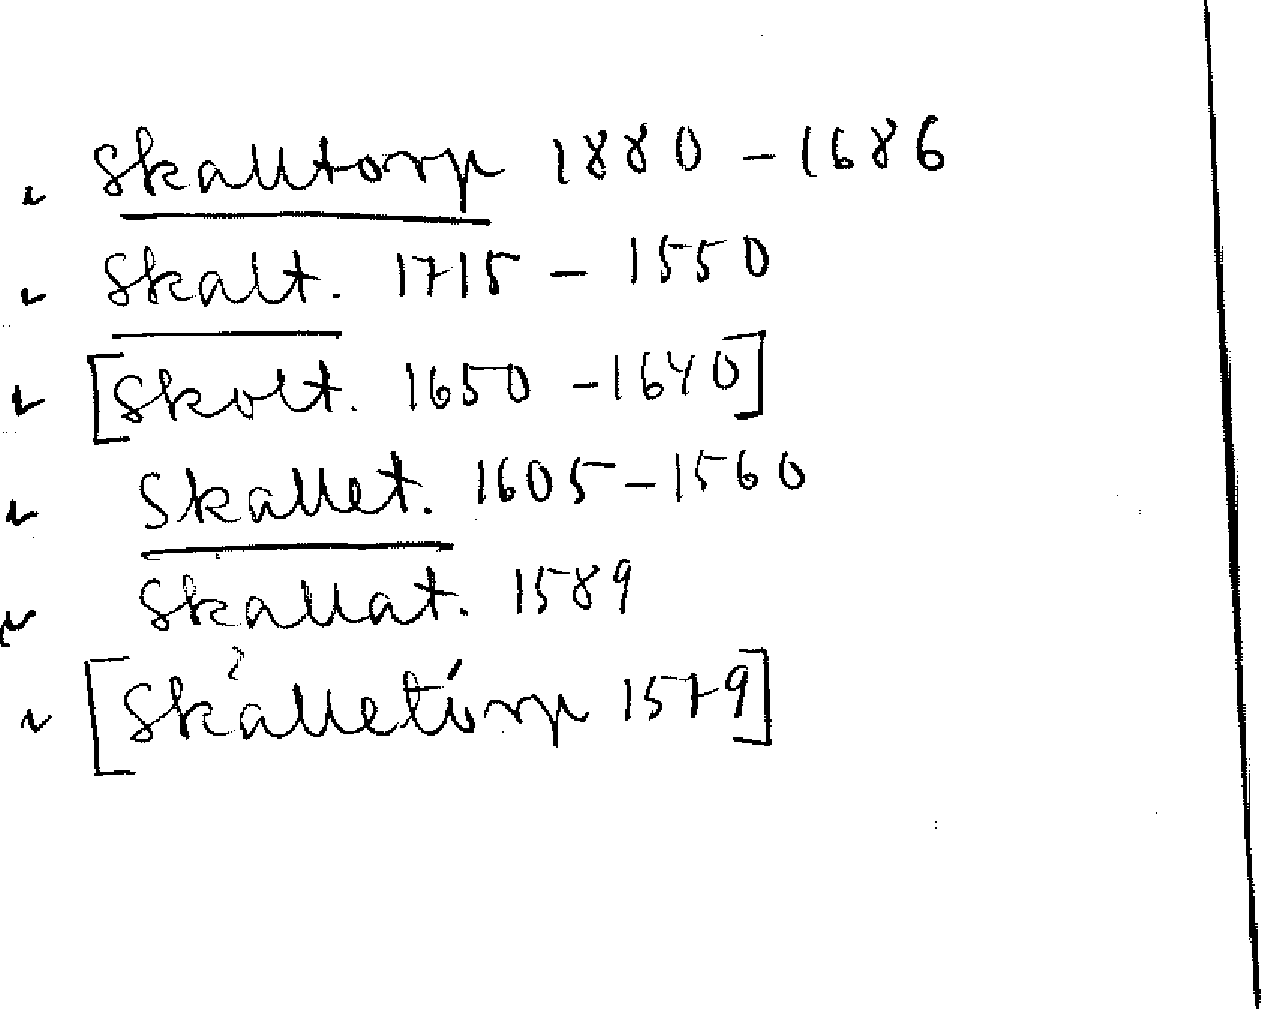 Skalltorp 1880 - 1686
Skalt. 1715 - 1550
[Skolt. 1650 - 1640]
Skallet. 1605 - 1560
Skallat. 1589
?
[Skalletorp 1579]